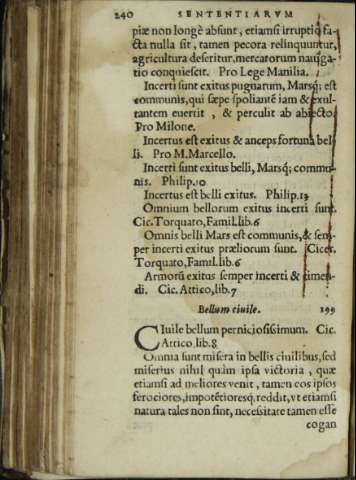 240 SENTENTIARVM
piæ non longè absunt, etiamsi irruptio fa-
cta nulla sit, tamen pecora relinquuntur,
agricultura deseritur, mercatorum nauiga-
tio conquiescit. Pro Lege Manilia.
Incerti sunt exitus pugnarum, Marsq; est
communis, qui sæpe spoliantē iam & exul-
tantem euertit, & perculit ab abiecto.
Pro Milone.
Incertus est exitus & anceps fortuna bel-
li. Pro M. Marcello.
Incerti sunt exitus belli, Marsq; commu-
nis. Philip. 10
Incertus est belli exitus. Philip. 13
Omnium bellorum exitus incerti sunt.
Cic. Torquato, Famil. lib. 6
Omnis belli Mars est communis, & sem-
per incerti exitus præliorum sunt. Cicer.
Torquato, Famil. lib. 6
Armorū exitus semper incerti & timen-
di. Cic. Attico, lib. 7
Bellum ciuile. 199
CIuile bellum perniciosissimum. Cic.
Attico. lib. 8
Omnia sunt misera in bellis ciuilibus, sed
miserius nihil quàm ipsa victoria, quæ
etiamsi ad meliores venit, tamen eos ipsos
ferociores, impotētioresq; reddit, vt etiamsi
natura tales non sint, necessitate tamen esse
cogan